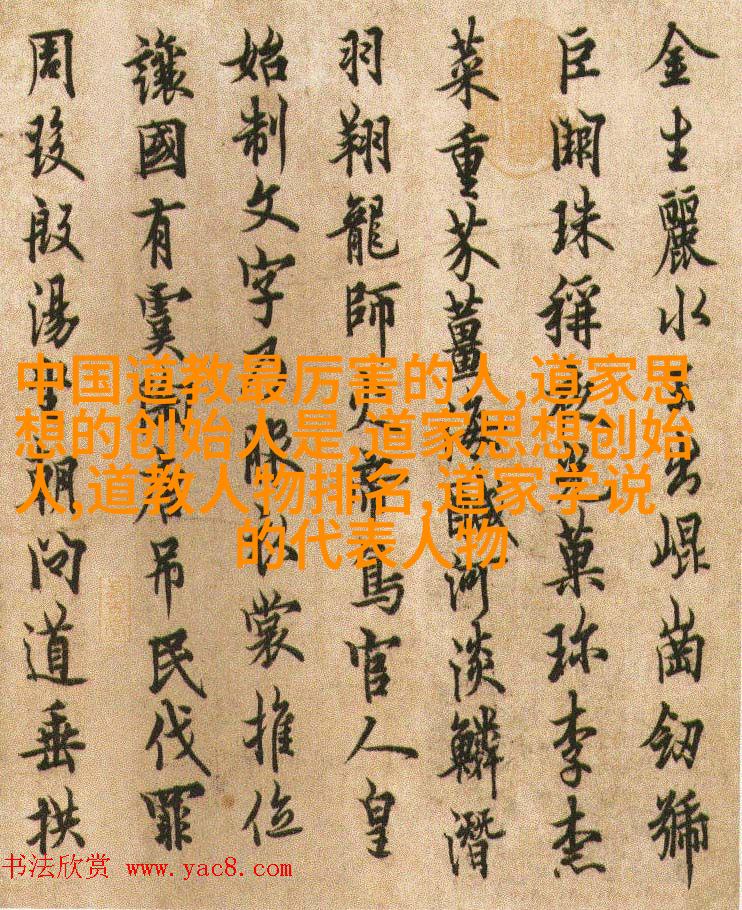 金生麗水出崐崗劒號
巨闕珠稱菓珎李柰
菜重芥薑海鹹河淡鱗潛
羽翔龍師火帝鳥官人皇
始制文字乃服衣裳推位
讓國有虞吊民伐罪
周發殷湯坐朝問道垂拱
中国道教最厉害的人,道家思
想的创始人是,道家思想创始
人,道教人物排名,道家学说
的代表人物
书法欣赏 www.yac8.com